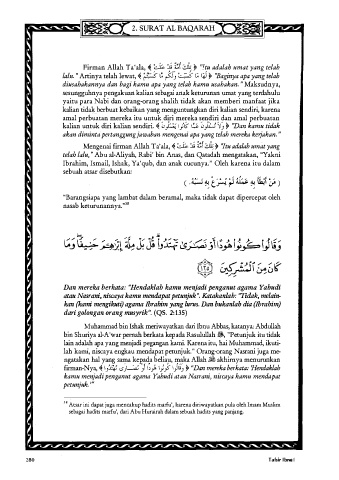 2. SURAT AL BAQARAH
Firman Allah Ta'ala, ﴿ تِلْكَ أُمَّةٌ قَدْ خَلَتْ ﴾ "Itu adalah umat yang telah
lalu." Artinya telah lewat, ﴿ لَهَا مَا كَسَبَتْ وَلَكُم مَّا كَسَبْتُمْ ﴾ "Baginya apa yang telah
diusahakannya dan bagi kamu apa yang telah kamu usahakan." Maksudnya,
sesungguhnya pengakuan kalian sebagai anak keturunan umat yang terdahulu
yaitu para Nabi dan orang-orang shalih tidak akan memberi manfaat jika
kalian tidak berbuat kebaikan yang menguntungkan diri kalian sendiri, karena
amal perbuatan mereka itu untuk diri mereka sendiri dan amal perbuatan
kalian untuk diri kalian sendiri. ﴿ وَلَا تُسْأَلُونَ عَمَّا كَانُوا يَعْمَلُونَ ﴾ "Dan kamu tidak
akan diminta pertanggung jawaban mengenai apa yang telah mereka kerjakan."
Mengenai firman Allah Ta'ala, ﴿ تِلْكَ أُمَّةٌ قَدْ خَلَتْ ﴾ "Itu adalah umat yang
telah lalu," Abu al-Aliyah, Rabi' bin Anas, dan Qatadah mengatakan, "Yakni
Ibrahim, Ismail, Ishak, Ya'qub, dan anak cucunya." Oleh karena itu dalam
sebuah atsar disebutkan:
( مَنْ أَبْطَأَ بِهِ عَمَلُهُ لَمْ يُسْرِعْ بِهِ نَسَبُهُ. )
"Barangsiapa yang lambat dalam beramal, maka tidak dapat dipercepat oleh
nasab keturunannya."
وَقَالُوا كُونُوا هُودًا أَوْ نَصَارَىٰ تَهْتَدُوا قُلْ بَلْ مِلَّةَ إِبْرَاهِيمَ حَنِيفًا وَمَا
كَانَ مِنَ الْمُشْرِكِينَ ١٣٥
Dan mereka berkata: "Hendaklah kamu menjadi penganut agama Yahudi
atau Nasrani, niscaya kamu mendapat petunjuk". Katakanlah: "Tidak, melain-
kan (kami mengikuti) agama Ibrahim yang lurus. Dan bukanlah dia (Ibrahim)
dari golongan orang musyrik". (QS. 2:135)
Muhammad bin Ishak meriwayatkan dari Ibnu Abbas, katanya: Abdullah
bin Shuriya al-A'war pernah berkata kepada Rasulullah ﷺ, "Petunjuk itu tidak
lain adalah apa yang menjadi pegangan kami. Karena itu, hai Muhammad, ikuti-
lah kami, niscaya engkau mendapat petunjuk." Orang-orang Nasrani juga me-
ngatakan hal yang sama kepada beliau, maka Allah ﷻ akhirnya menurunkan
firman-Nya, ﴿ وَقَالُوا كُونُوا هُودًا أَوْ نَصَارَى تَهْتَدُوا ﴾ "Dan mereka berkata: 'Hendaklah
kamu menjadi penganut agama Yahudi atau Nasrani, niscaya kamu mendapat
petunjuk.'"
Atsar ini dapat juga mencakup hadits marfu', karena diriwayatkan pula oleh Imam Muslim
sebagai hadits marfu', dari Abu Hurairah dalam sebuah hadits yang panjang.
280 Tafsir Ibnu